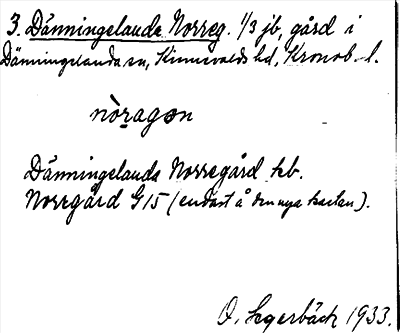 3. Dänningelanda Norreg. 1/3 jb, gård i
Dänningelanda sn, Kinnevalds hd, Kronob. l.
nòragən
Dänningelanda Norregård kb.
Norrgård G15 (endast å den nya kartan).
O. Segerbäck 1933.